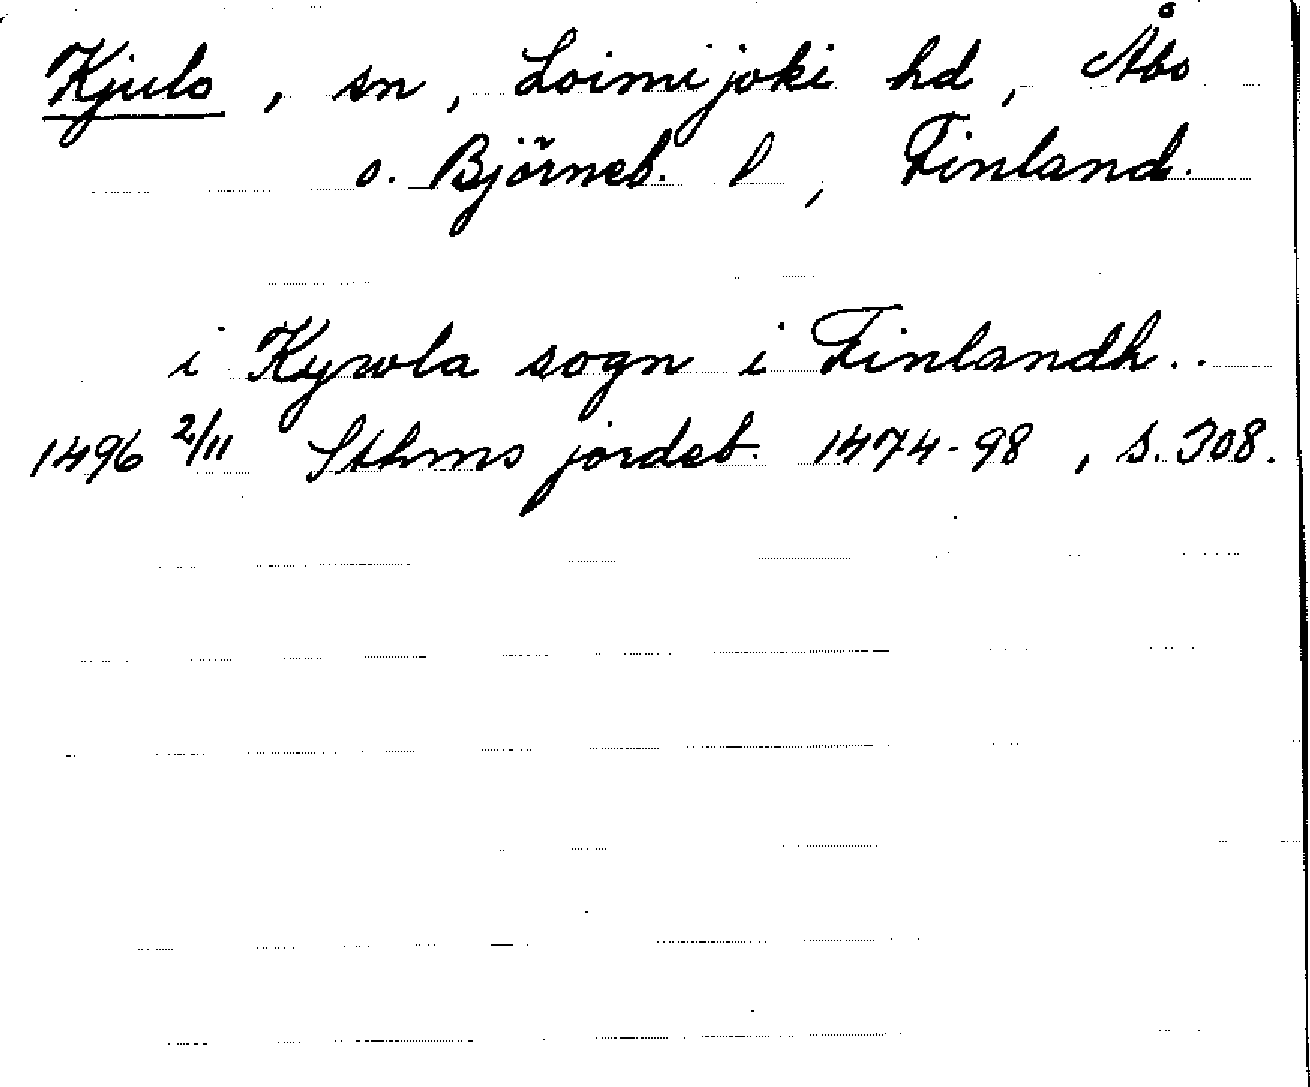 Kjulo, sn, Loimijoki hd, Åbo
o. Björneb. l, Finland.
i Kywla sogn i Finlandh..
1496 2/11 Sthms jordeb. 1474-98, s. 308.